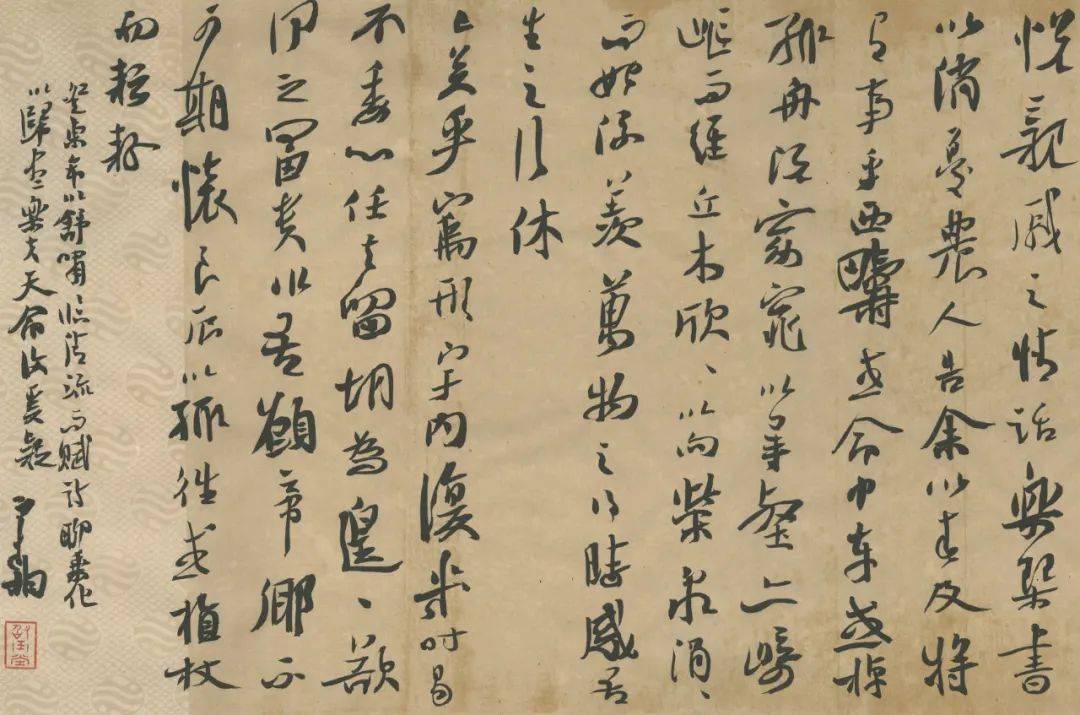 悅親戚之情話樂琴書
以消憂農人告余以春及將
有事乎西疇或命巾車或棹
孤舟既窈窕以尋壑亦崎
嶇而經丘木欣〻以向榮泉涓〻
而始流羨萬物之得時感吾
生之行休
已矣乎寓形宇內復幾時曷
不委心任去留胡為遑〻欲
何之富貴非吾願帝鄉不
可期懷良辰以孤往或植杖
而耘耔
登東皋以舒嘯臨清流而賦詩聊乘化
以歸盡樂夫天命復奚疑